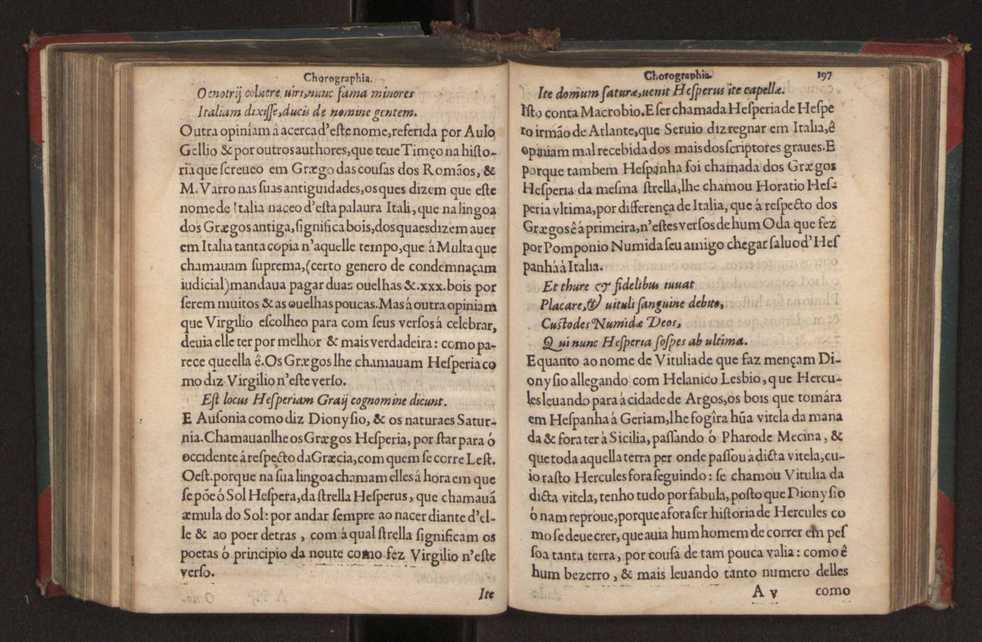 Chorographia.
Oenotrij coluere uiri, nunc fama minores
Italiam dixisse, ducis de nomine gentem.
Outra opiniam à acerca d'este nome, referida por Aulo
Gellio & por outros authores, que teue Timço na histo-
ria que screueo em Græego das cousas dos Romãos, &
M. Varro nas suas antiguidades, os ques dizem que este
nome de Italia naceo d'esta palaura Itali, que na lingoa
dos Græegos antiga, significa bois, dos quaes dizem auer
em Italia tanta copia n'aquelle tempo, que á Multa que
chamauam suprema, (certo genero de condemnaçam
iudicial) mandaua pagar duas ouelhas &.xxx. bois por
serem muitos & as ouelhas poucas. Mas á outra opiniam
que Virgilio escolheo para com seus versos à celebrar,
deuia elle ter por melhor & mais verdadeira: como pa-
rece que ella ê. Os Græegos lhe chamauam Hesperia co
mo diz Virgilio n'este verso.
Est locus Hesperiam Graij cognomine dicunt.
E Ausonia como diz Dionysio, & os naturaes Satur-
nia. Chamauanlhe os Græegos Hesperia, por star para ó
occidente à respecto da Græcia, com quem se corre Lest.
Oest. porque na sua lingoa chamam elles á hora em que
se põe ó Sol Hespera, da strella Hesperus, que chamauã
æmula do Sol: por andar sempre ao nacer diante d'el-
le & ao poer detras, com á qual strella significam os
poetas ó principio da noute como fez Virgilio n'este
verso.
Ite
Chorographia.
197
Ite domum saturæ, uenit Hesperus ite capellæ.
Isto conta Macrobio. E ser chamada Hesperia de Hespe
ro irmão de Atlante, que Seruio diz regnar em Italia, ê
opiniam mal recebida dos mais dos scriptores graues. E
porque tambem Hespanha foi chamada dos Græegos
Hesperia da mesma strella, lhe chamou Horatio Hes-
peria vltima, por differença de Italia, que à respecto dos
Græegos ê à primeira, n'estes versos de hum Oda que fez
por Pomponio Numida seu amigo chegar saluo d'Hes
panha à Italia.
Et thure & fidelibus iuuat
Placare, & uituli sanguine debito,
Custodes Numidæ Deos,
Qui nunc Hesperia sospes ab ultima.
E quanto ao nome de Vitulia de que faz mençam Di-
onysio allegando com Helanico Lesbio, que Hercu-
les leuando para à cidade de Argos, os bois que tomára
em Hespanha á Geriam, lhe fogîra hũa vitela da mana
da & fora ter à Sicilia, passando ó Pharo de Mecina, &
que toda aquella terra per onde passou à dicta vitela, cu-
io rasto Hercules fora seguindo: se chamou Vitulia da
dicta vitela, tenho tudo por fabula, posto que Dionysio
ó nam reproue, porque afora ser historia de Hercules co
mo se deue crer, que auia hum homem de correr em pes
soa tanta terra, por cousa de tam pouca valia: como ê
hum bezerro, & mais leuando tanto numero delles
A v como